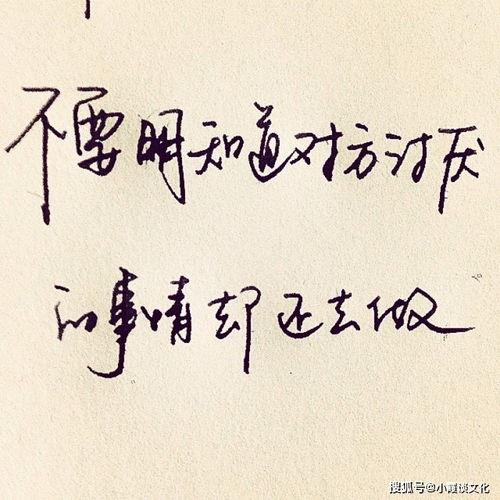 不要明知道对方讨厌
的事情却还去做
搜狐号@小霞谈文化